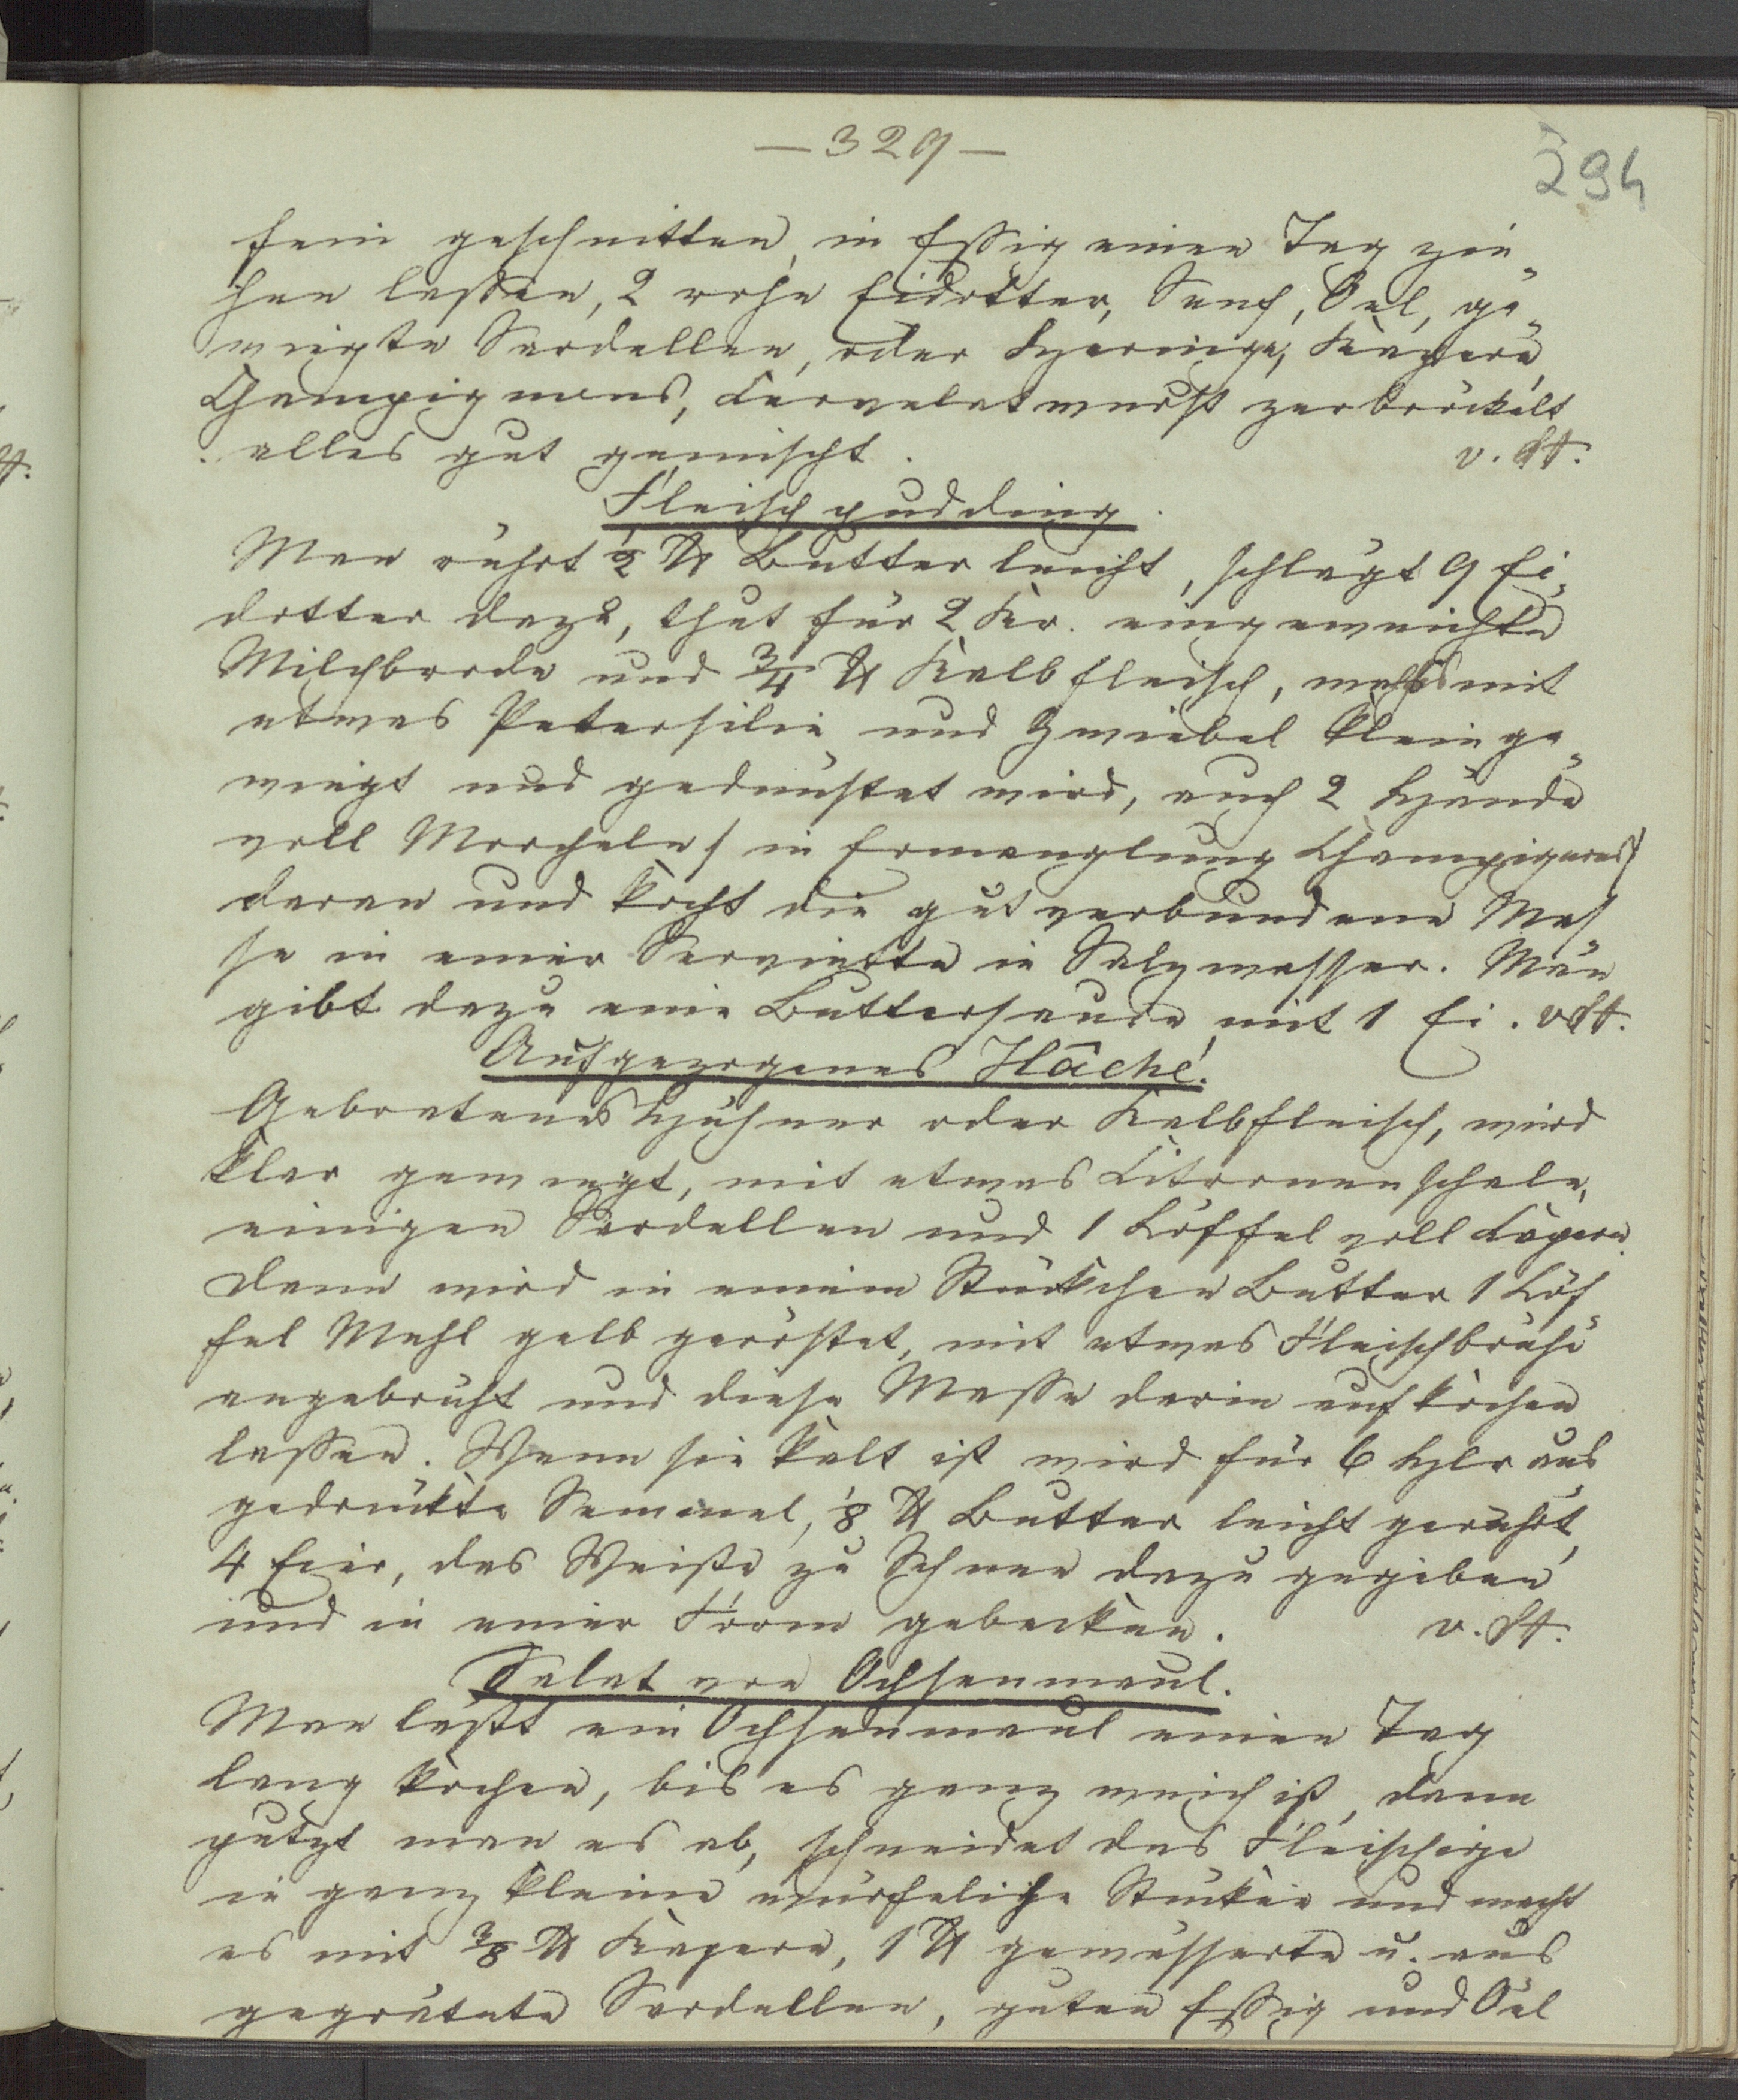 — 329 —
294
fein geschnitten, in Essig einen Tag zie„
hen lassen, 2 rohe Eidotter, Senf, Oel, ge„
wiegte Sardellen, oder Heringe, Kapern,
Champignons, Cervelatwurst zerbröckelt
alles gut gemischt. v. St.
Fleischpudding.
Man rührt ½ ℔ Butter leicht, schlägt 9 Ei„
dotter dazu, thut für 2 Kr. eingeweichte
Milchbrode und ¾ ℔ Kalbfleisch, welches mit
etwas Petersilie und Zwiebel klein ge„
wiegt und gedünstet wird, auch 2 Hände
voll Morcheln / in Ermanglung Champignons /
daran und kocht die gut verbundene Mas
se in einer Serviette in Salzwasser. Man
gibt dazu eine Buttersauce mit 1 Ei. v St.
Aufgezogenes Hâché.
Gebratenes Hühner oder Kalbfleisch, wird
klar gewiegt, mit etwas Citronenschale,
einigen Sardellen und 1 Löffel voll Capern.
Dann wird in einem Stückchen Butter 1 Löf„
fel Mehl gelb geröstet, mit etwas Fleischbrühe
angebrüht und diese Masse darin aufkochen
lassen. Wenn sie kalt ist wird für 6 Hlr aus
gedrückte Semmel, ⅛ ℔ Butter leicht gerührt,
4 Eier, das Weiße zu Schnee dazu gegeben
und in einer Form gebacken. v. St.
Salat von Ochsenmaul.
Man leßt ein Ochsenmaul einen Tag
lang kochen, bis es ganz weich ist, dann
putzt man es ab, schneidet das Fleischige
in ganz kleine würfeliche Stücke und macht
es mit ⅜ ℔ Kapern, 1 ℔ gewässerte u. aus
gegrätete Sardellen, guten Essig und Oel